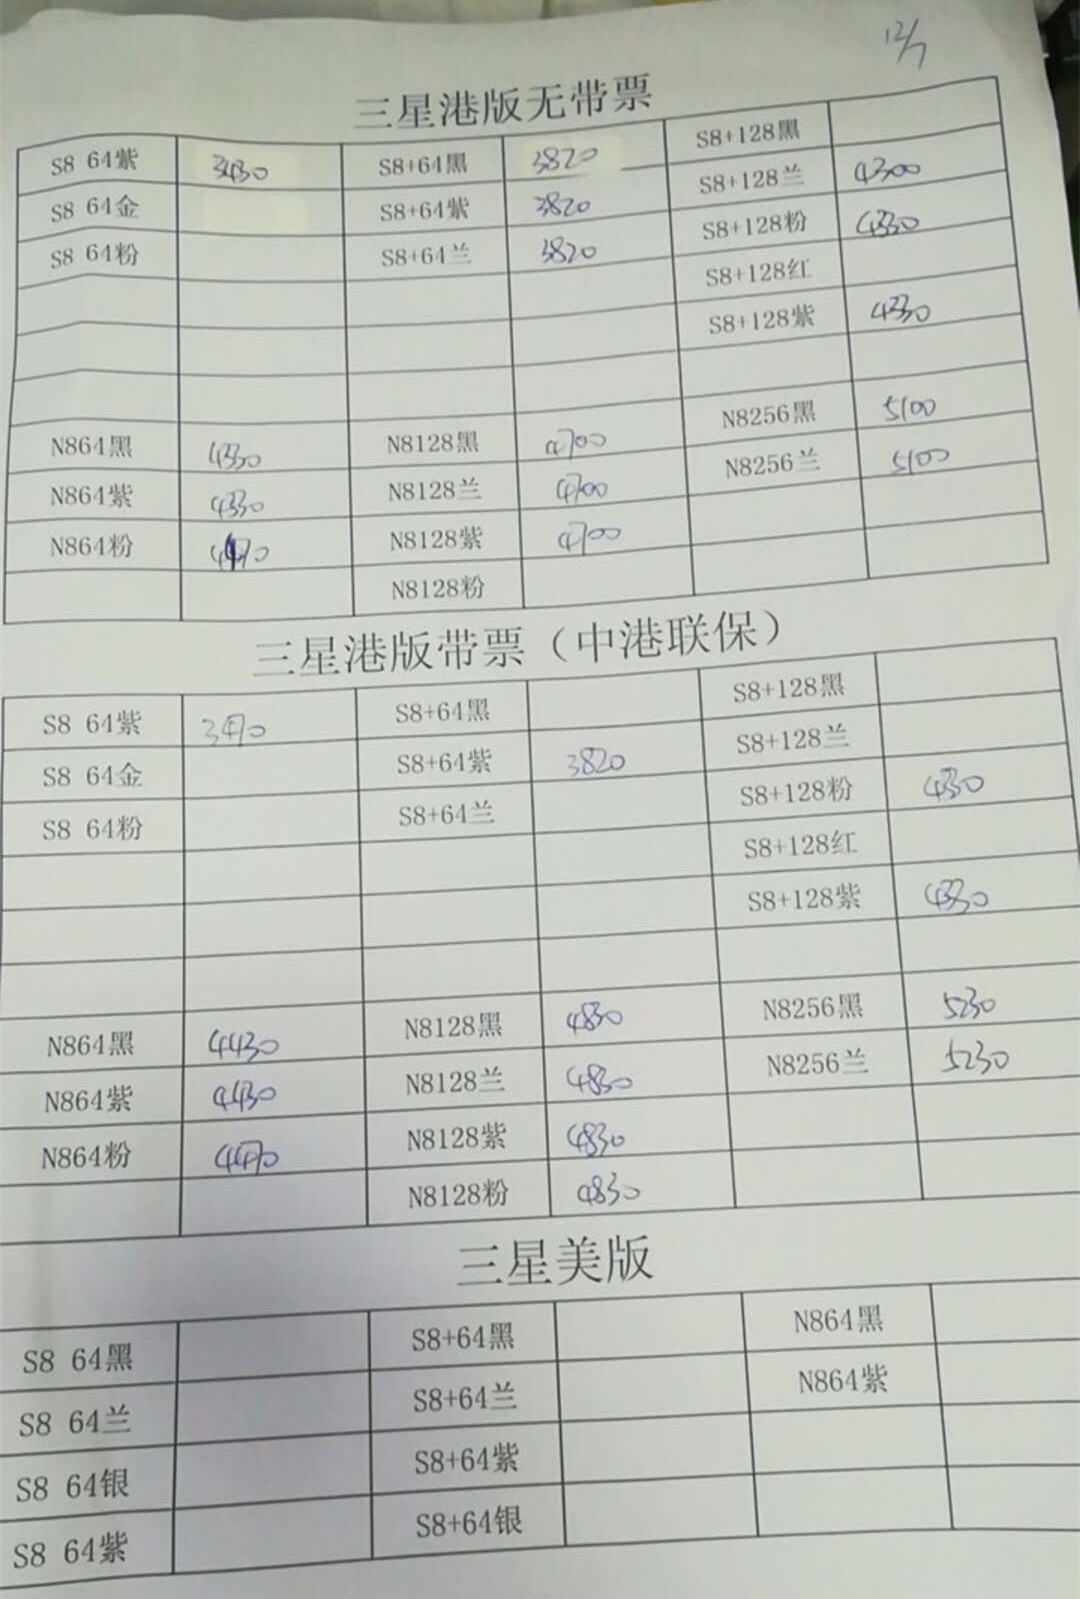 12/7
三星港版无带票
S8 64紫 3430 S8+64黑 3820 S8+128黑
S8 64金 S8+64紫 3820 S8+128兰 4300
S8 64粉 S8+64兰 3820 S8+128粉 4330
S8+128红
S8+128紫 4330
N864黑 4330 N8128黑 4700 N8256黑 5100
N864紫 4330 N8128兰 4700 N8256兰 5100
N864粉 N8128紫 4700
N8128粉
三星港版带票（中港联保）
S8 64紫 3470 S8+64黑 S8+128黑
S8 64金 S8+64紫 3820 S8+128兰
S8 64粉 S8+64兰 S8+128粉 4330
S8+128红
S8+128紫 4330
N864黑 4430 N8128黑 4830 N8256黑 5230
N864紫 4430 N8128兰 4830 N8256兰 5230
N864粉 4470 N8128紫 4830
N8128粉 4830
三星美版
S8 64黑 S8+64黑 N864黑
S8 64兰 S8+64兰 N864紫
S8 64银 S8+64紫
S8 64紫 S8+64银